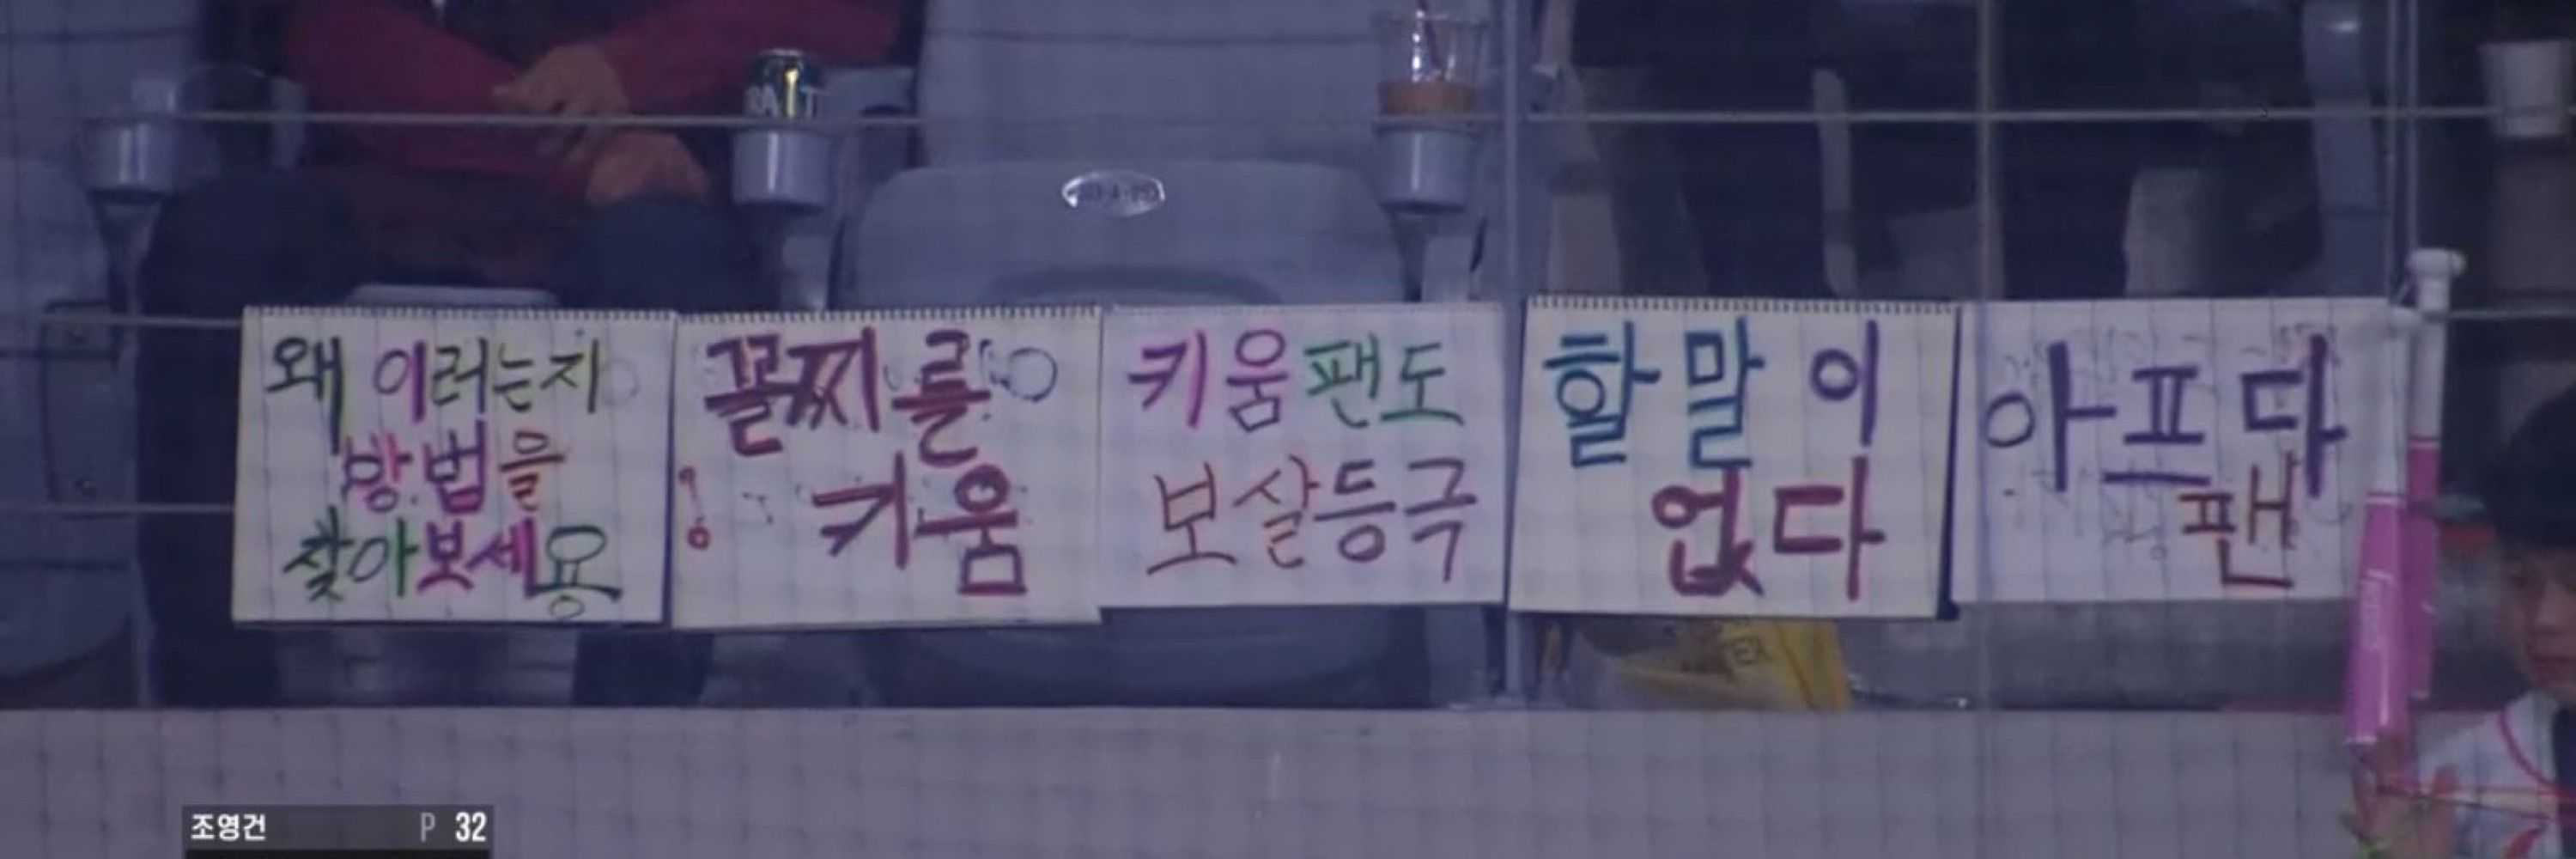 왜 이러는지
방법을
찾아보세용
꼴찌를
! 키움
키움팬도
보살등극
할말이
없다
아프다
팬
조영건 P 32